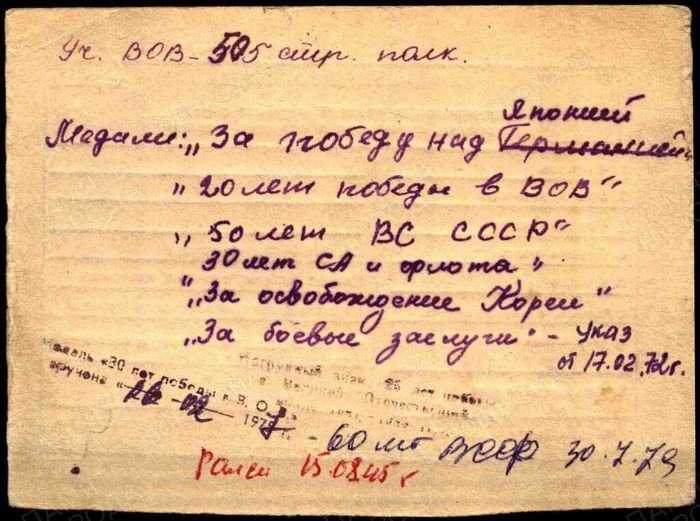 Уч. ВОВ - 505 стр. полк.
Японией
Медали: „За победу над Германией"
„20 лет победы в ВОВ"
„50 лет ВС СССР"
30 лет СА и флота"
„За освобождение Кореи"
„За боевые заслуги" - указ
от 17.02.72г.
Медаль «30 лет победы в В. О. В.»
вручена « 02 197
Нагрудный знак 25 лет победы
в Великой Отечественной
- 60 лет 30.7.79
Ранен 15.08.45 г